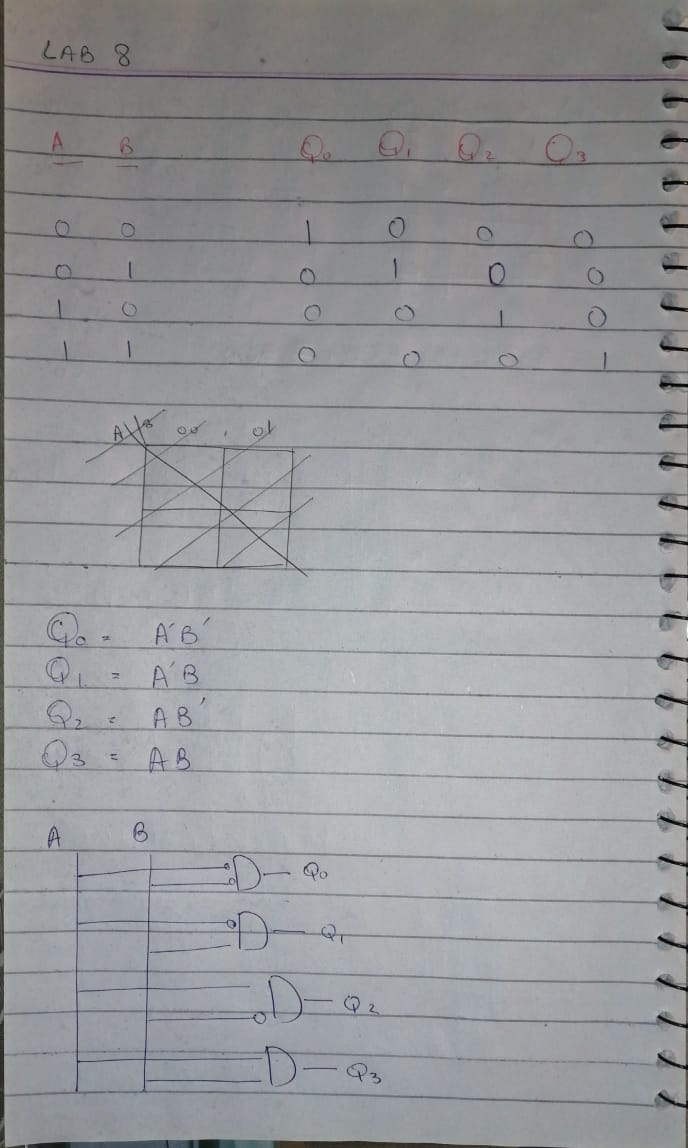 LAB 8
A B Q₀ Q₁ Q₂ Q₃
0 0 1 0 0 0
0 1 0 1 0 0
1 0 0 0 1 0
1 1 0 0 0 1
A B 00 01
Q₀ = A'B'
Q₁ = A'B
Q₂ = AB'
Q₃ = AB
A B
Q₀
Q₁
Q₂
Q₃